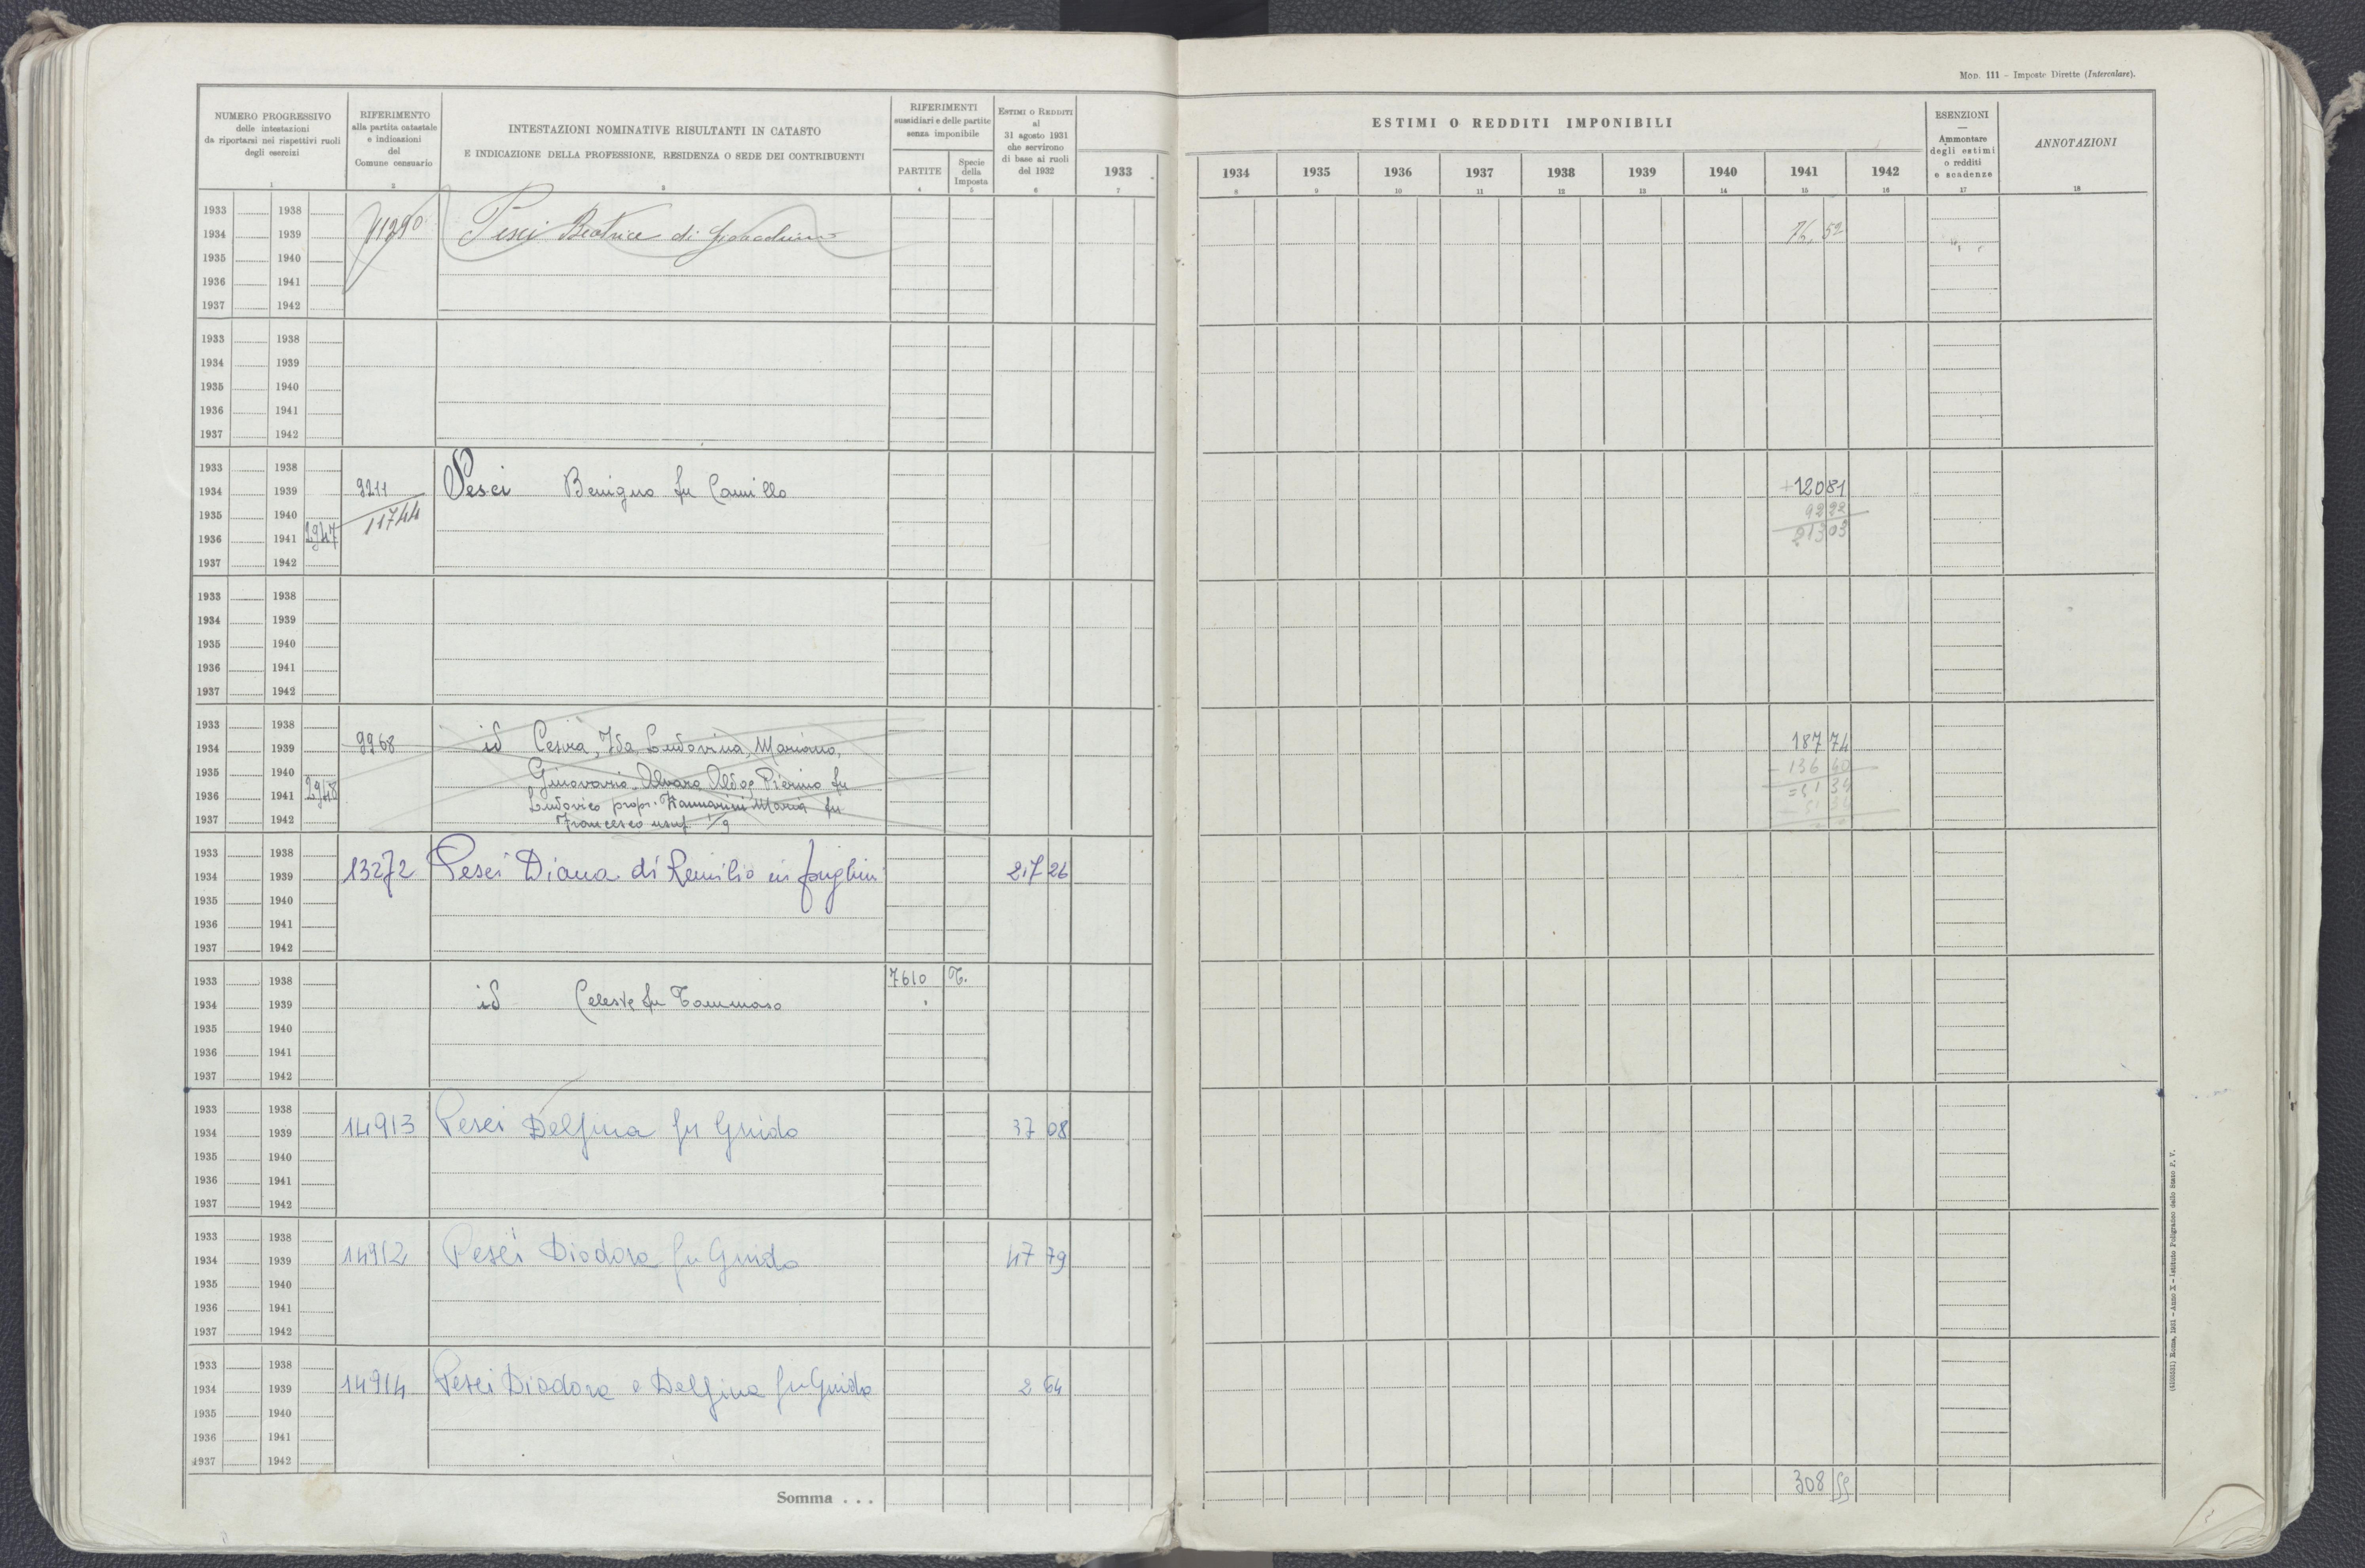 MOD. 111 – Imposte Dirette (Intercalare).
NUMERO PROGRESSIVO
delle intestazioni
da riportarsi nei rispettivi ruoli
degli esercizi
RIFERIMENTO
alla partita catastale
e indicazioni
del
Comune censuario
INTESTAZIONI NOMINATIVE RISULTANTI IN CATASTO
E INDICAZIONE DELLA PROFESSIONE, RESIDENZA O SEDE DEI CONTRIBUENTI
RIFERIMENTI
sussidiari e delle partite
senza imponibile
PARTITE
Specie
della
Imposta
ESTIMI O REDDITI
al
31 agosto 1931
che servirono
di base ai ruoli
del 1932
ESTIMI O REDDITI IMPONIBILI
1933 1934 1935 1936 1937 1938 1939 1940 1941 1942
ESENZIONI
—
Ammontare
degli estimi
o redditi
e scadenze
ANNOTAZIONI
1 2 3 4 5 6 7 8 9 10 11 12 13 14 15 16 17 18
1933 1938
1934 1939 11290 Pesci Beatrice di 76,52
1935 1940
1936 1941
1937 1942
1933 1938
1934 1939
1935 1940
1936 1941
1937 1942
1933 1938
1934 1939 9211 Pesci Benigno fu Camillo +120 81
1935 1940 11744 92 22
1936 1941 2947 213 03
1937 1942
1933 1938
1934 1939
1935 1940
1936 1941
1937 1942
1933 1938
1934 1939 9968 id Cesira, Ida, Ludovina, Mariano, 187 74
1935 1940 Alvaro Aldo e Pierino fu – 136 40
1936 1941 2948 Ludovico propr. Maria fu = 51 34
1937 1942 Francesco usuf. 1/9
1933 1938
1934 1939 13272 Pesci Diana di Remilio in 217 26
1935 1940
1936 1941
1937 1942
1933 1938 7610 T.
1934 1939 id Celeste fu Tommaso
1935 1940
1936 1941
1937 1942
1933 1938
1934 1939 14913 Pesci Delfina fu Guido 37 08
1935 1940
1936 1941
1937 1942
1933 1938
1934 1939 14912 Pesci Diodora fu Guido 47 79
1935 1940
1936 1941
1937 1942
1933 1938
1934 1939 14914 Pesci Diodora e Delfina fu Guido 2 64
1935 1940
1936 1941
1937 1942
Somma . . . 308 55
Roma, 1931 – Anno X – Istituto Poligrafico dello Stato P. V.